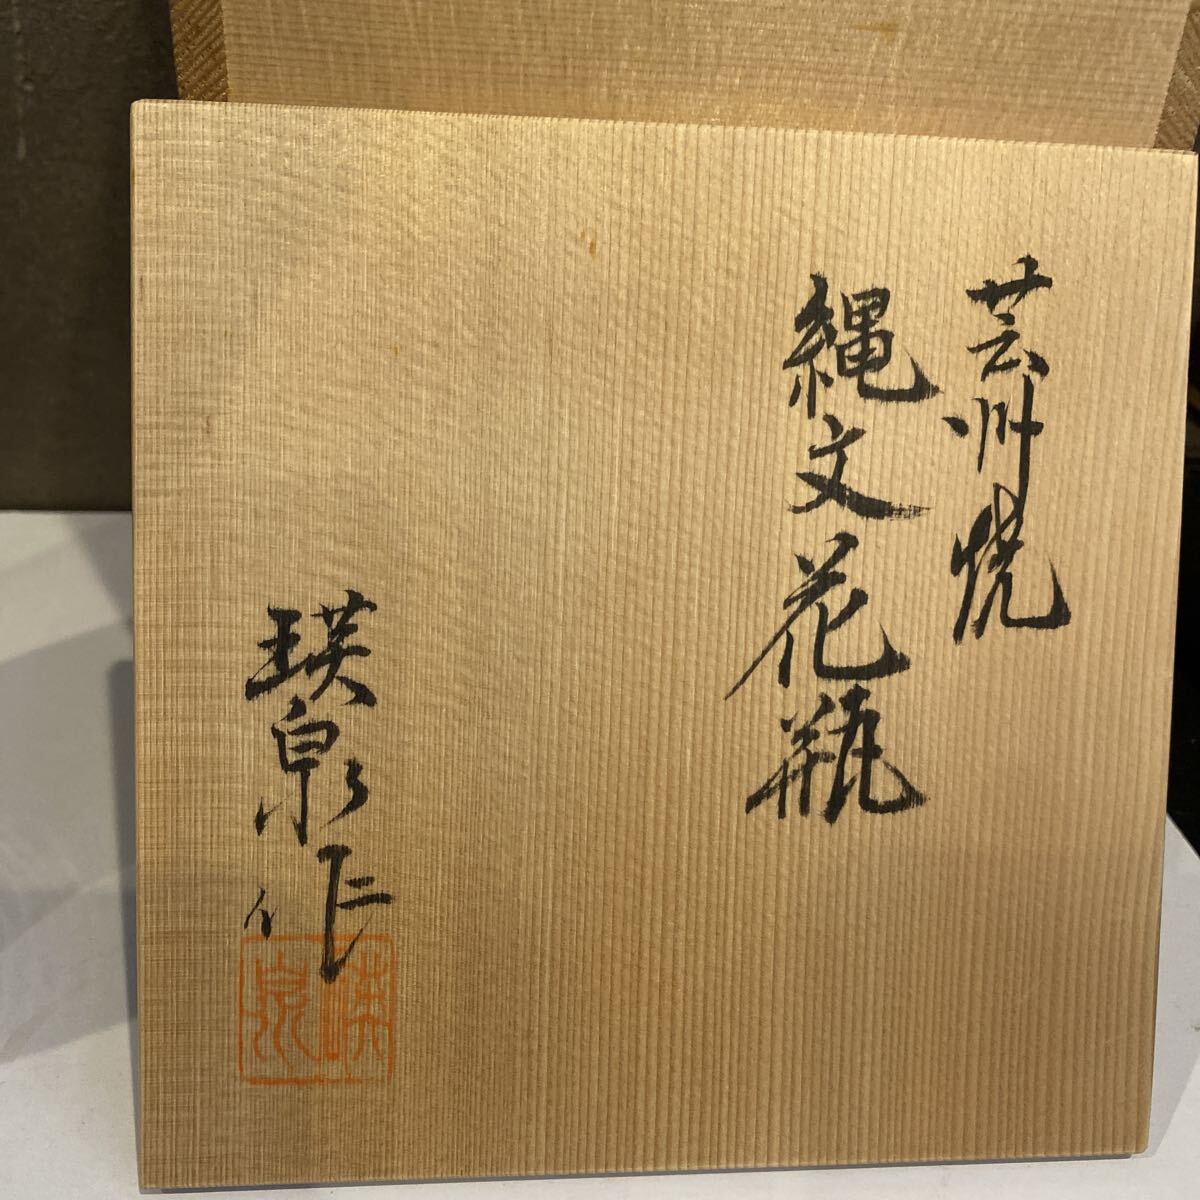 芸州焼
縄文花瓶
瑛泉作
瑛泉